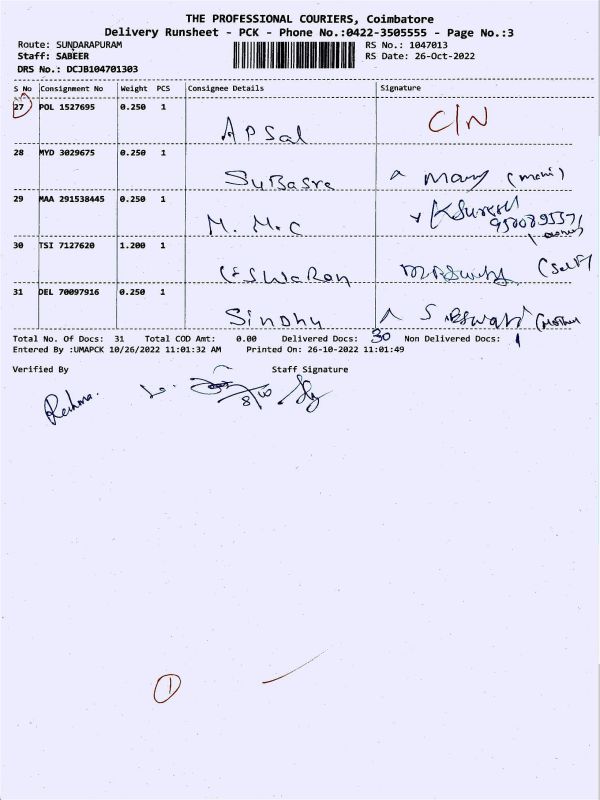 THE PROFESSIONAL COURIERS, Coimbatore
Delivery Runsheet - PCK - Phone No.:0422-3505555 - Page No.:3
Route: SUNDARAPURAM
RS No.: 1047013
Staff: SABEER
RS Date: 26-Oct-2022
DRS No.: DCJB104701303
S No Consignment No Weight PCS Consignee Details Signature
27 POL 1527695 0.250 1
APSal C/N
28 MYD 3029675 0.250 1
SuBasre
29 MAA 291538445 0.250 1
M. M.C KSuresh
30 TSI 7127620 1.200 1
ESWaRan (Self)
31 DEL 70097916 0.250 1
SinDhu (Mother
Total No. Of Docs: 31 Total COD Amt: 0.00 Delivered Docs: 30 Non Delivered Docs: 1
Entered By :UMAPCK 10/26/2022 11:01:32 AM Printed On: 26-10-2022 11:01:49
Verified By Staff Signature
1